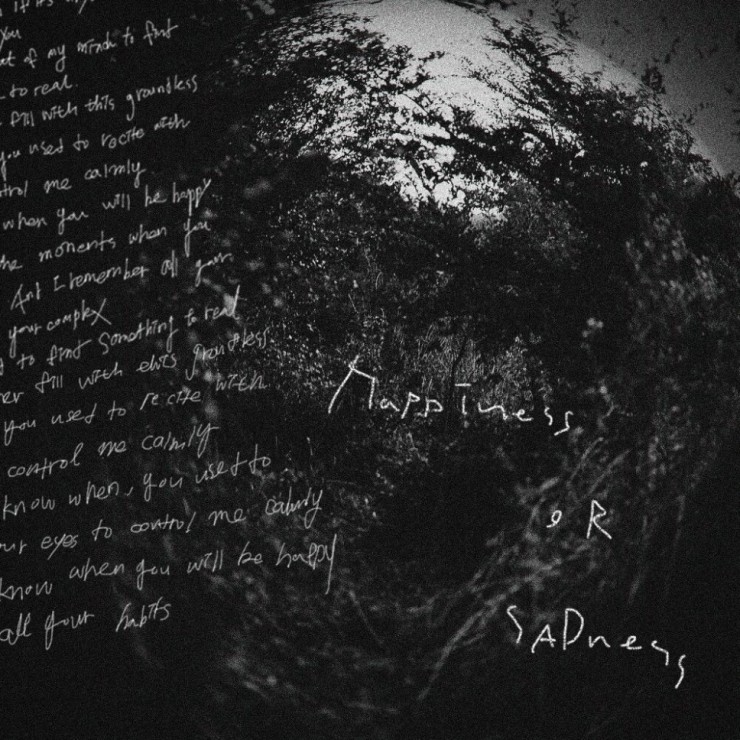 you
of my mind to find
to real.
fill with this groundless
you used to recite with
control me calmly
when you will be happy
the moments when you
And I remember all your
your complex
to find Something to real
fill with this groundless
you used to recite with
control me calmly
know when, you used to
eyes to control me calmly
know when you will be happy
all your habits
Happiness
oR
SADness